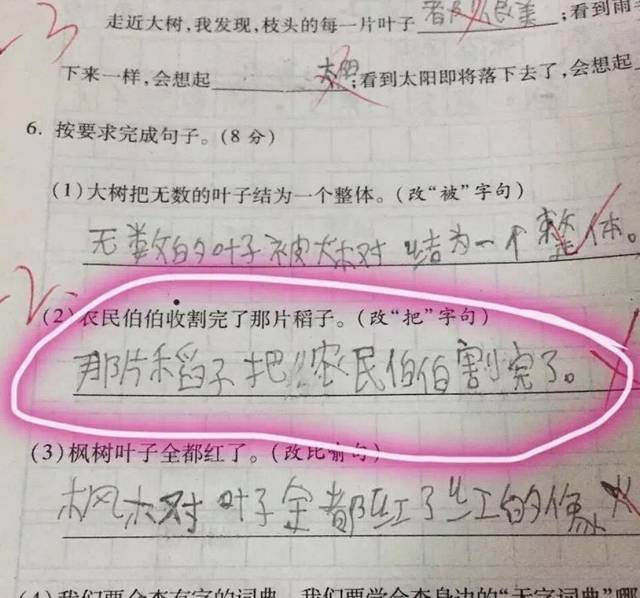 走近大树,我发现,枝头的每一片叶子 ;看到雨
下来一样,会想起 太阳;看到太阳即将落下去了,会想起
6. 按要求完成句子。(8 分)
(1)大树把无数的叶子结为一个整体。(改“被”字句)
无数的叶子被大树结为一个整体。
(2)农民伯伯收割完了那片稻子。(改“把”字句)
那片稻子把农民伯伯割完了。
(3)枫树叶子全都红了。(改比喻句)
枫树叶子全都红了红的像火
(4)我们要会查有字的词典,我们要学会查身边的“无字词典”